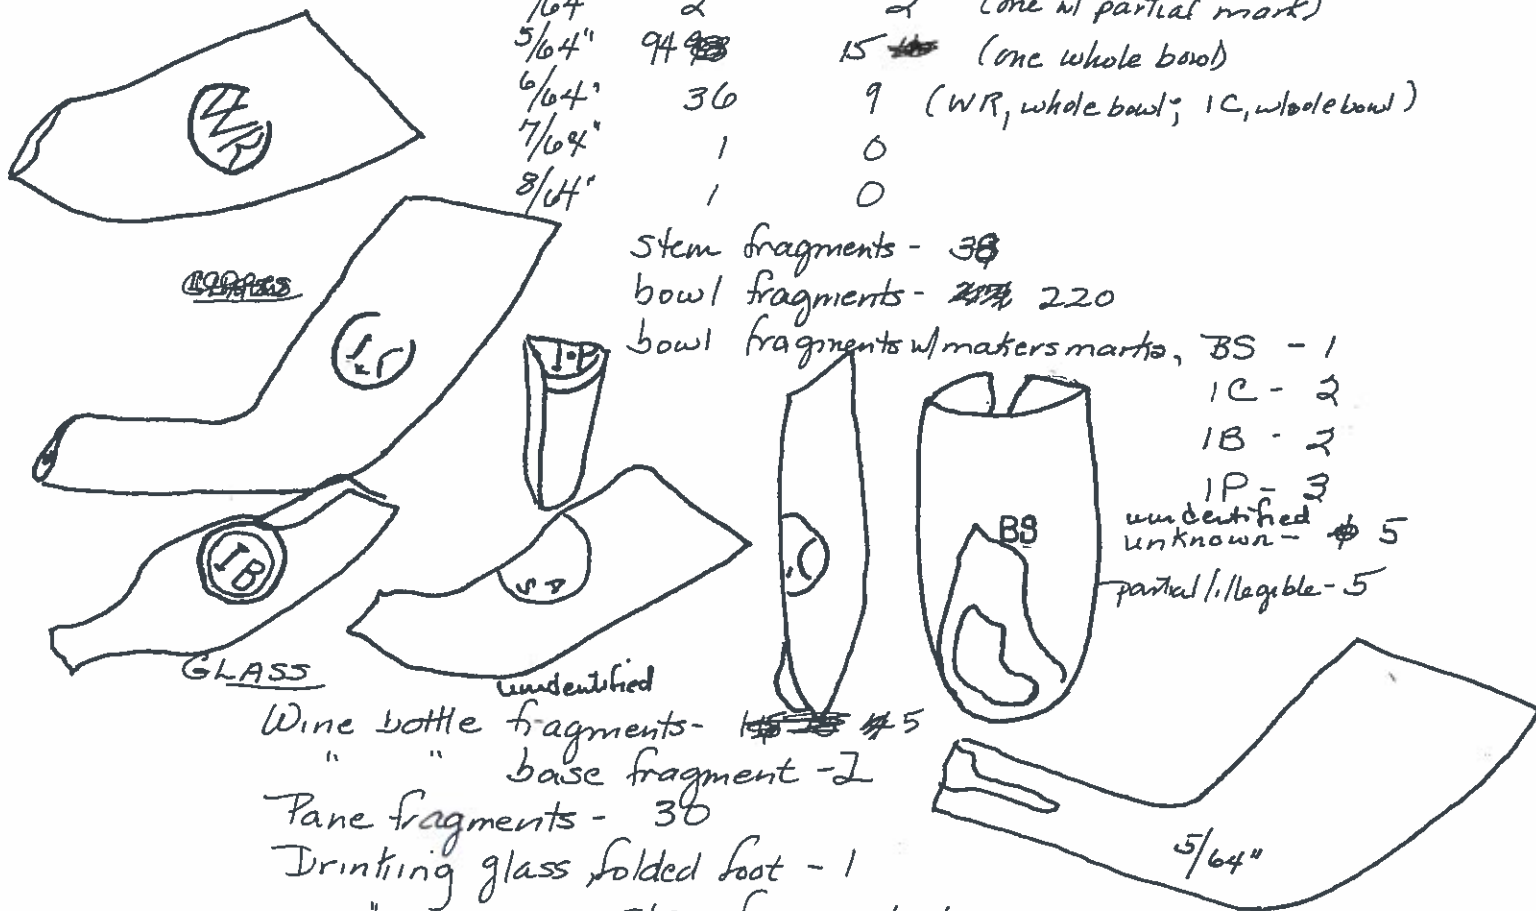 /64 2 2 (one w/ partial mark)
5/64" 94 15 (one whole bowl)
6/64" 36 9 (WR, whole bowl; IC, whole bowl)
7/64" 1 0
8/64" 1 0
WR
stem fragments - 38
bowl fragments - 220
bowl fragments w/makers marks, BS - 1
IC - 2
IB - 2
IP - 3
unidentified
unknown - 5
partial/illegible - 5
I·P
IB
BS
GLASS
unidentified
Wine bottle fragments - 5
" " base fragment - 2
Pane fragments - 30
Drinking glass, folded foot - 1
5/64"